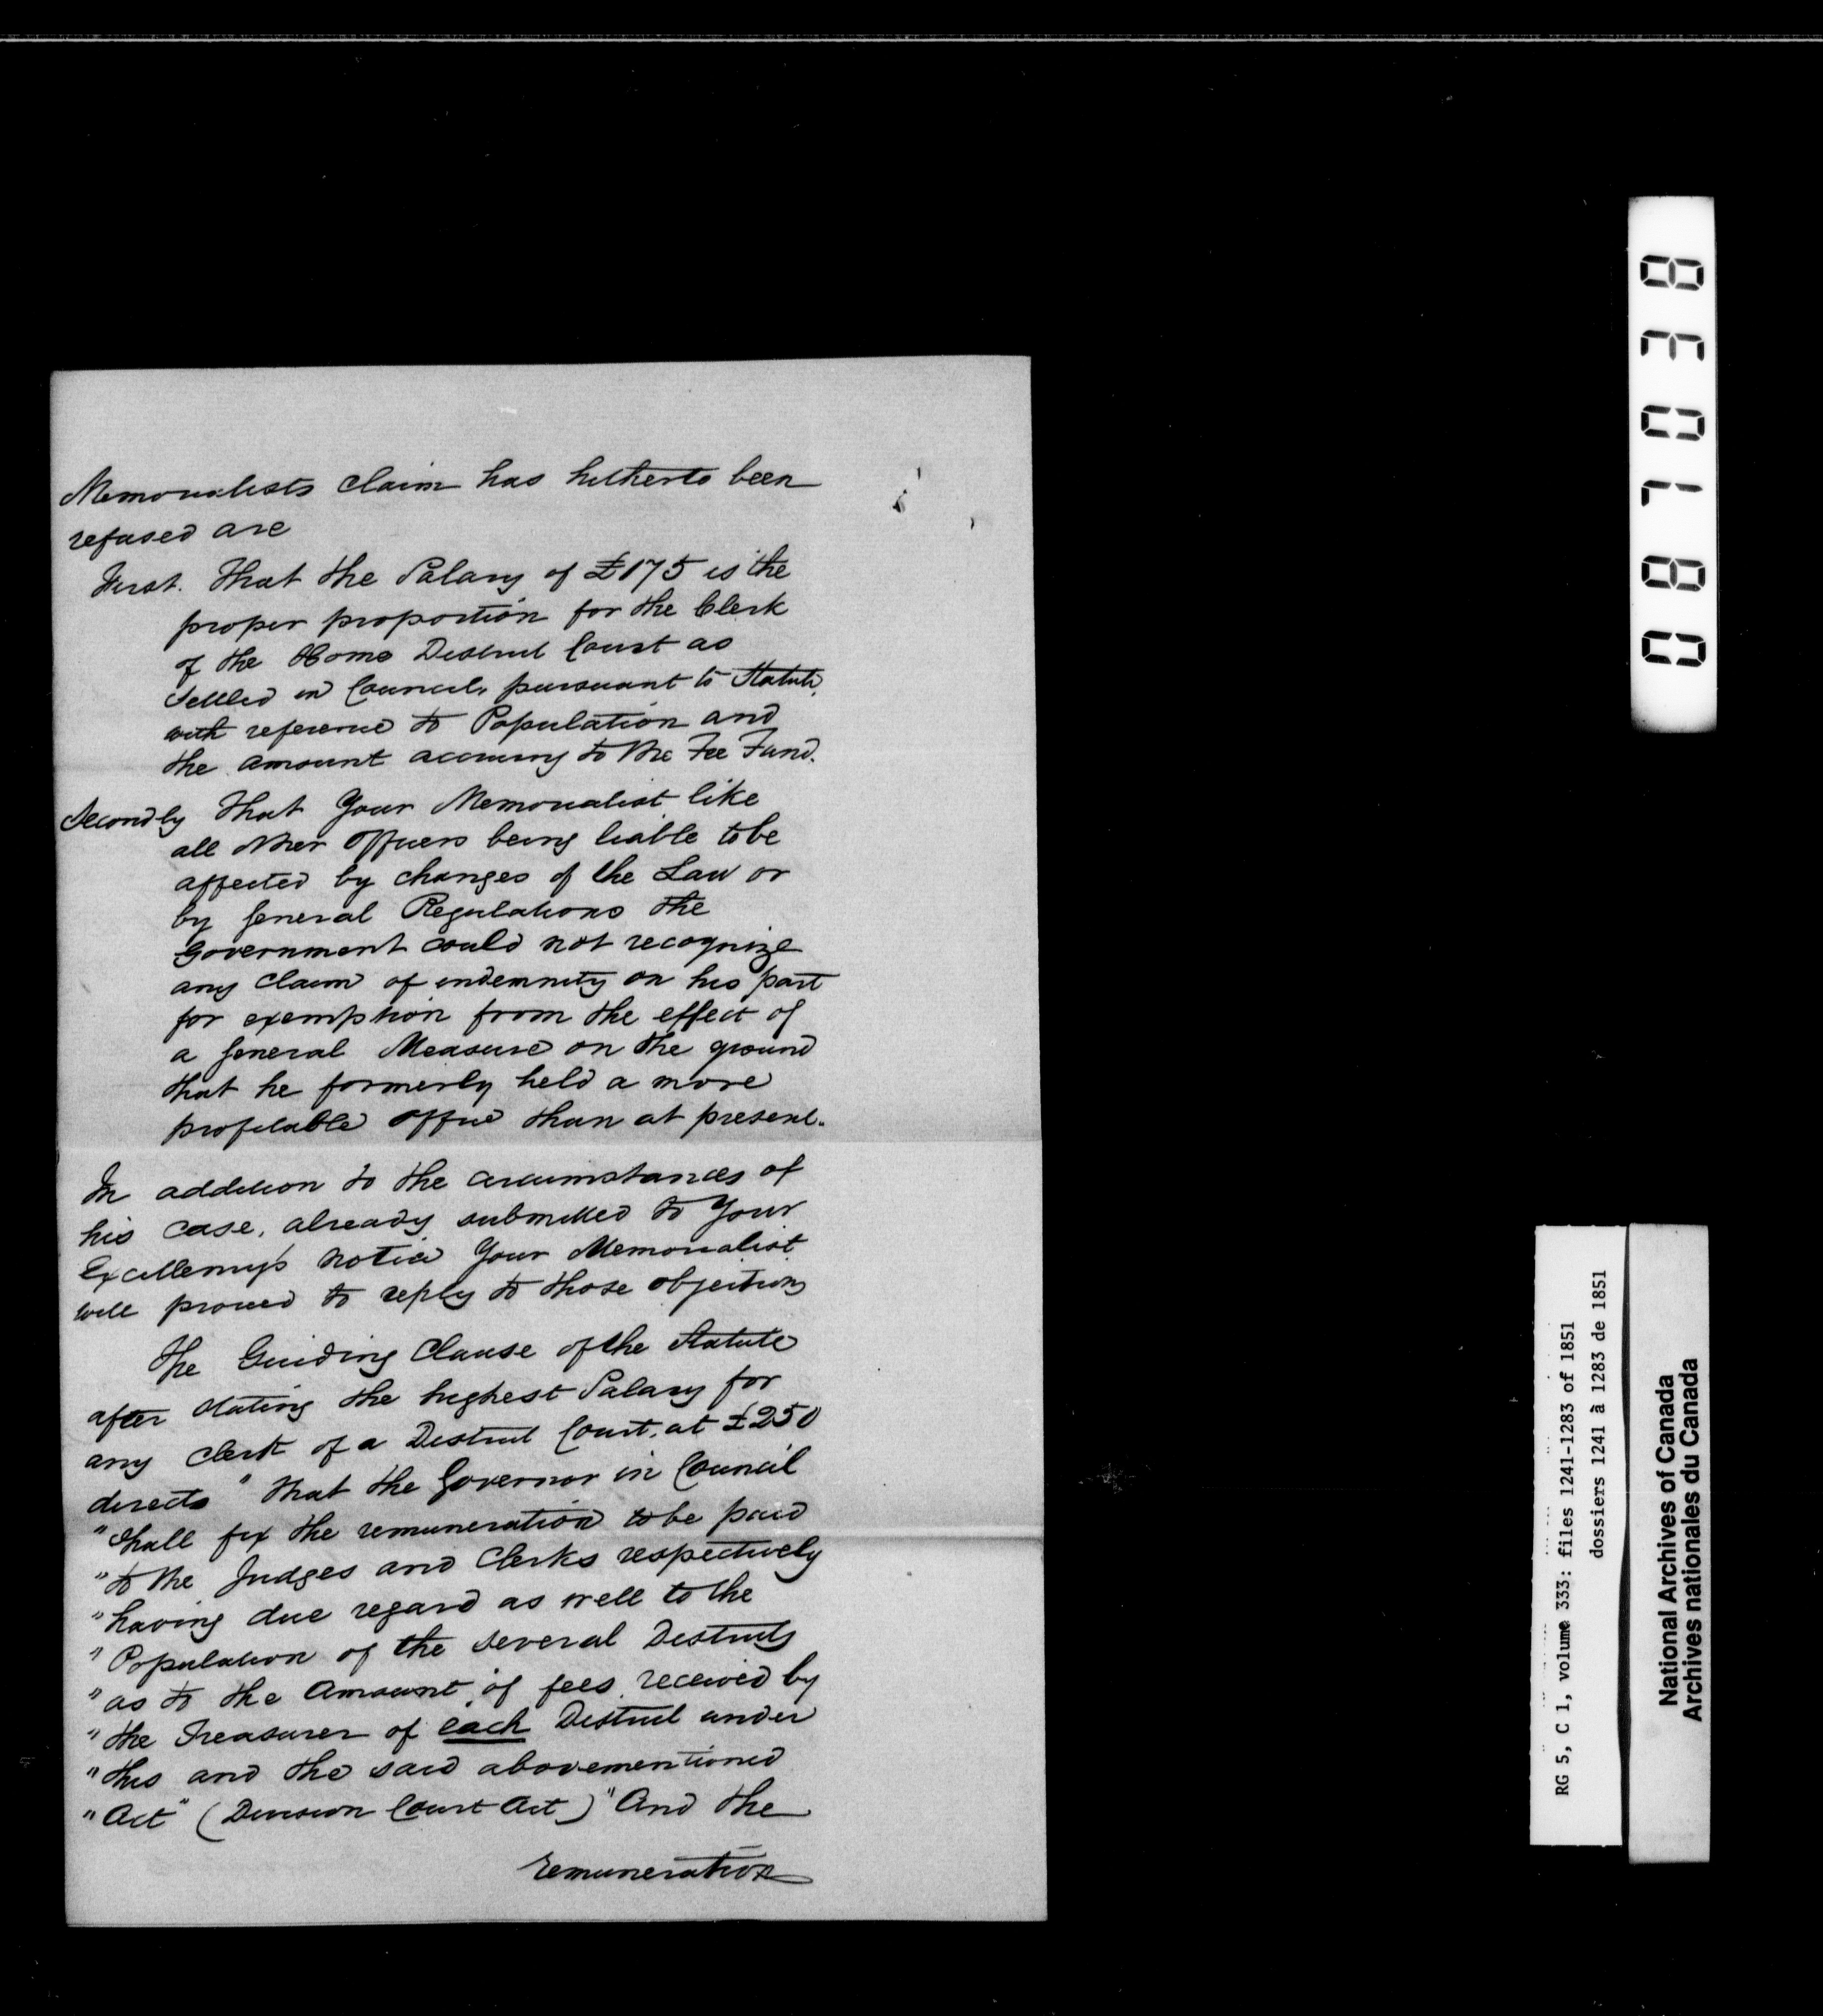 Memorialists claim has hitherto been
refused are
First. That the Salary of £175 is the
proper proportion for the Clerk
of the Home District Court as
settled in Council, pursuant to Statute,
with reference to Population and
the amount accruing to the Fee Fund.
Secondly That Your Memorialist like
all other Officers being liable to be
affected by changes of the Law or
by General Regulations the
Government could not recognize
any claim of indemnity on his part
for exemption from the effect of
a General Measure on the ground
that he formerly held a more
profitable office than at present.
In addition to the circumstances of
his case, already submitted to Your
Excellency's notice Your Memorialist
will proceed to reply to those objections
The Guiding Clause of the Statute
after stating the highest Salary for
any Clerk of a District Court, at £250
directs "that the Governor in Council
"Shall fix the remuneration to be paid
"to the Judges and Clerks respectively
"having due regard as well to the
"Population of the several Districts
"as to the Amount of fees received by
"the Treasurer of each District under
"this and the said abovementioned
"Act" (Division Court Act)" And the
remuneration
087038
RG 5, C 1, volume 333: files 1241-1283 of 1851
dossiers 1241 à 1283 de 1851
National Archives of Canada
Archives nationales du Canada